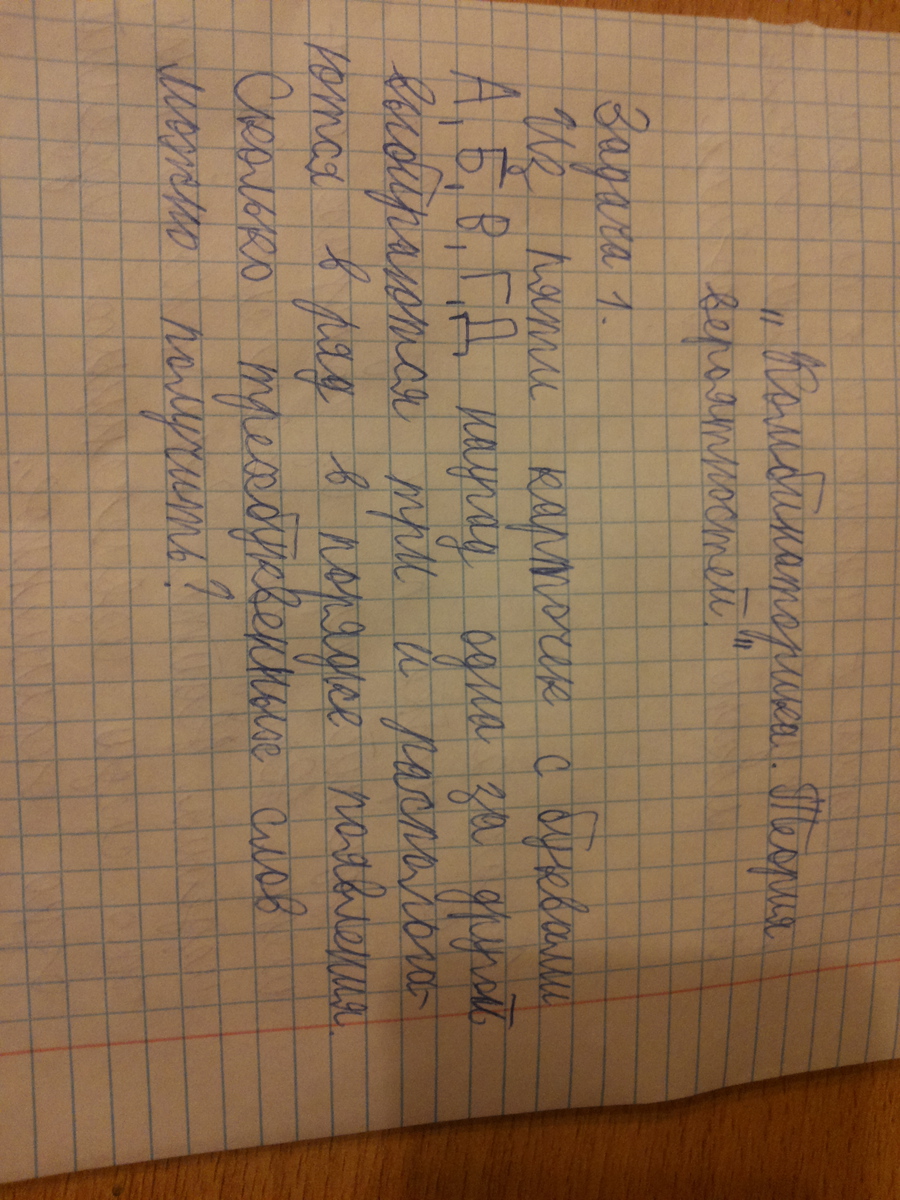 "Комбинаторика. Теория
вероятностей."
Задача 1.
Из пяти карточек с буквами
А, Б, В, Г, Д наугад одна за другой
выбираются три и распалога-
ются в ряд в порядке появления.
Сколько трехбуквенные слов
можно получить?